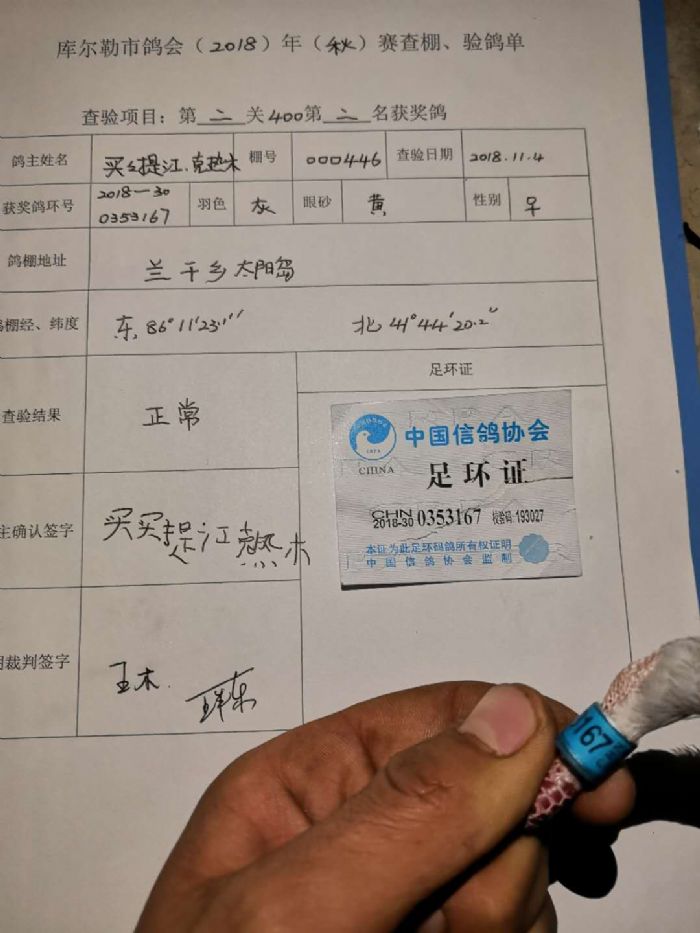 库尔勒市鸽会（2018）年（秋）赛查棚、验鸽单
查验项目：第二关400第二名获奖鸽
鸽主姓名 买买提江.克热木 棚号 000446 查验日期 2018.11.4
获奖鸽环号 2018-30 0353167 羽色 灰 眼砂 黄 性别 ♀
鸽棚地址 兰干乡太阳岛
鸽棚经、纬度 东86°11′23.1″ 北41°44′20.2″
足环证
查验结果 正常
中国信鸽协会
CHINA
足环证
CHN
2018-30 0353167 校验码:193027
本证为此足环码鸽所有权证明
中国信鸽协会监制
主确认签字 买买提江克热木
裁判签字 王木
167